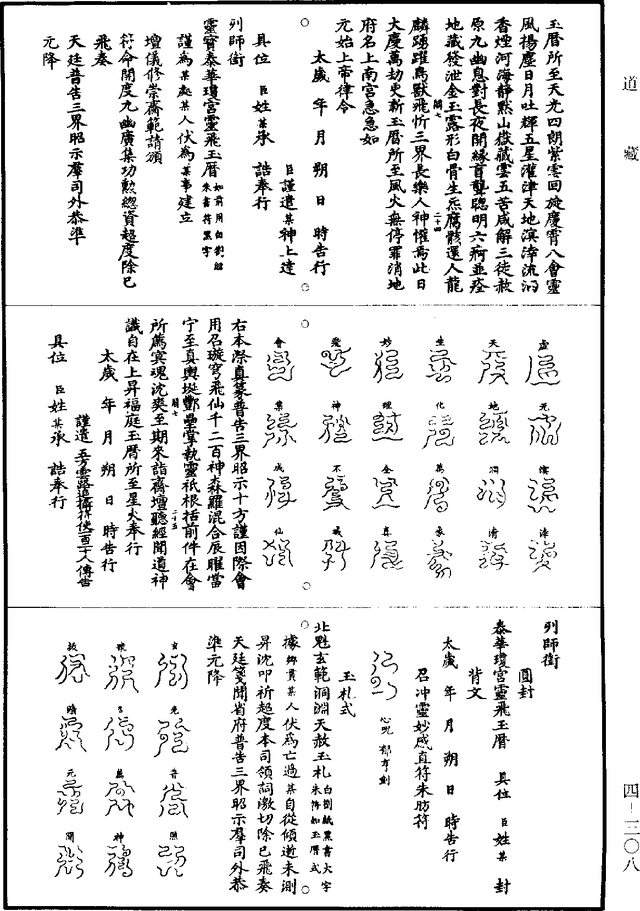 道藏
四—二〇八
玉曆所至天光四朗紫雲回旋慶霄八會靈
風揚塵日月吐輝五星灌津天地溟涬流汨
香煙河海靜默山嶽藏雲五苦咸解三徒赦
原九幽息對長夜開緣盲聾聰明六痾並痊
地藏發泄金玉露形白骨生炁腐骸還人龍
麟踴躍鳥獸飛忻三界長樂人神懽焉此日
大慶萬劫更新玉曆所至風火無停罪消地
府名上南宮急急如
元始上帝律令
太歲 年 月 朔 日 時告行
臣謹遣某神上達
具位 臣姓某承 誥奉行
列師銜
靈寶泰華瓊宮靈飛玉曆
謹為某處某人伏為某事建立
壇儀修崇齋範請頒
符命開度九幽廣集功勲總資超度除已
飛奏
天廷普告三界昭示羣司外恭準
元降
虛 元 溟 涬
天 地 洞 清
生 化 萬 象
妙 理 全 真
愛 神 不
會 集 成 仙
右本際真篆普告三界昭示十方謹因際會
用召璇穹飛仙千二百神森羅混合辰曜當
宁至真輿埏酆壘掌執靈祇根括前件在會
所薦冥魂沈爽至期來詣齋壇聽經聞道神
識自在上昇福庭玉曆所至星火奉行
太歲 年 月 朔 日 時告行
謹遣五方雲路追攝符使一百二十人傳告
具位 臣姓某承 誥奉行
列師銜
圓封
泰華瓊宮靈飛玉曆 具位 臣姓某 封
背文
太歲 年 月 朔 日 時告行
召沖靈妙感直符朱肪符
心咒
玉札式
北魁玄範洞淵天赦玉札
據鄉貫某人伏為亡過某自從傾逝未測
昇沈叩祈超度本司領詞激切除已飛奏
天廷箋聞省府普告三界昭示羣司外恭
準元降
玄 光 普 照
萬 神
元 開